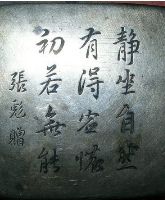 静坐自然
有得虚怀
初若無能
張彪贈